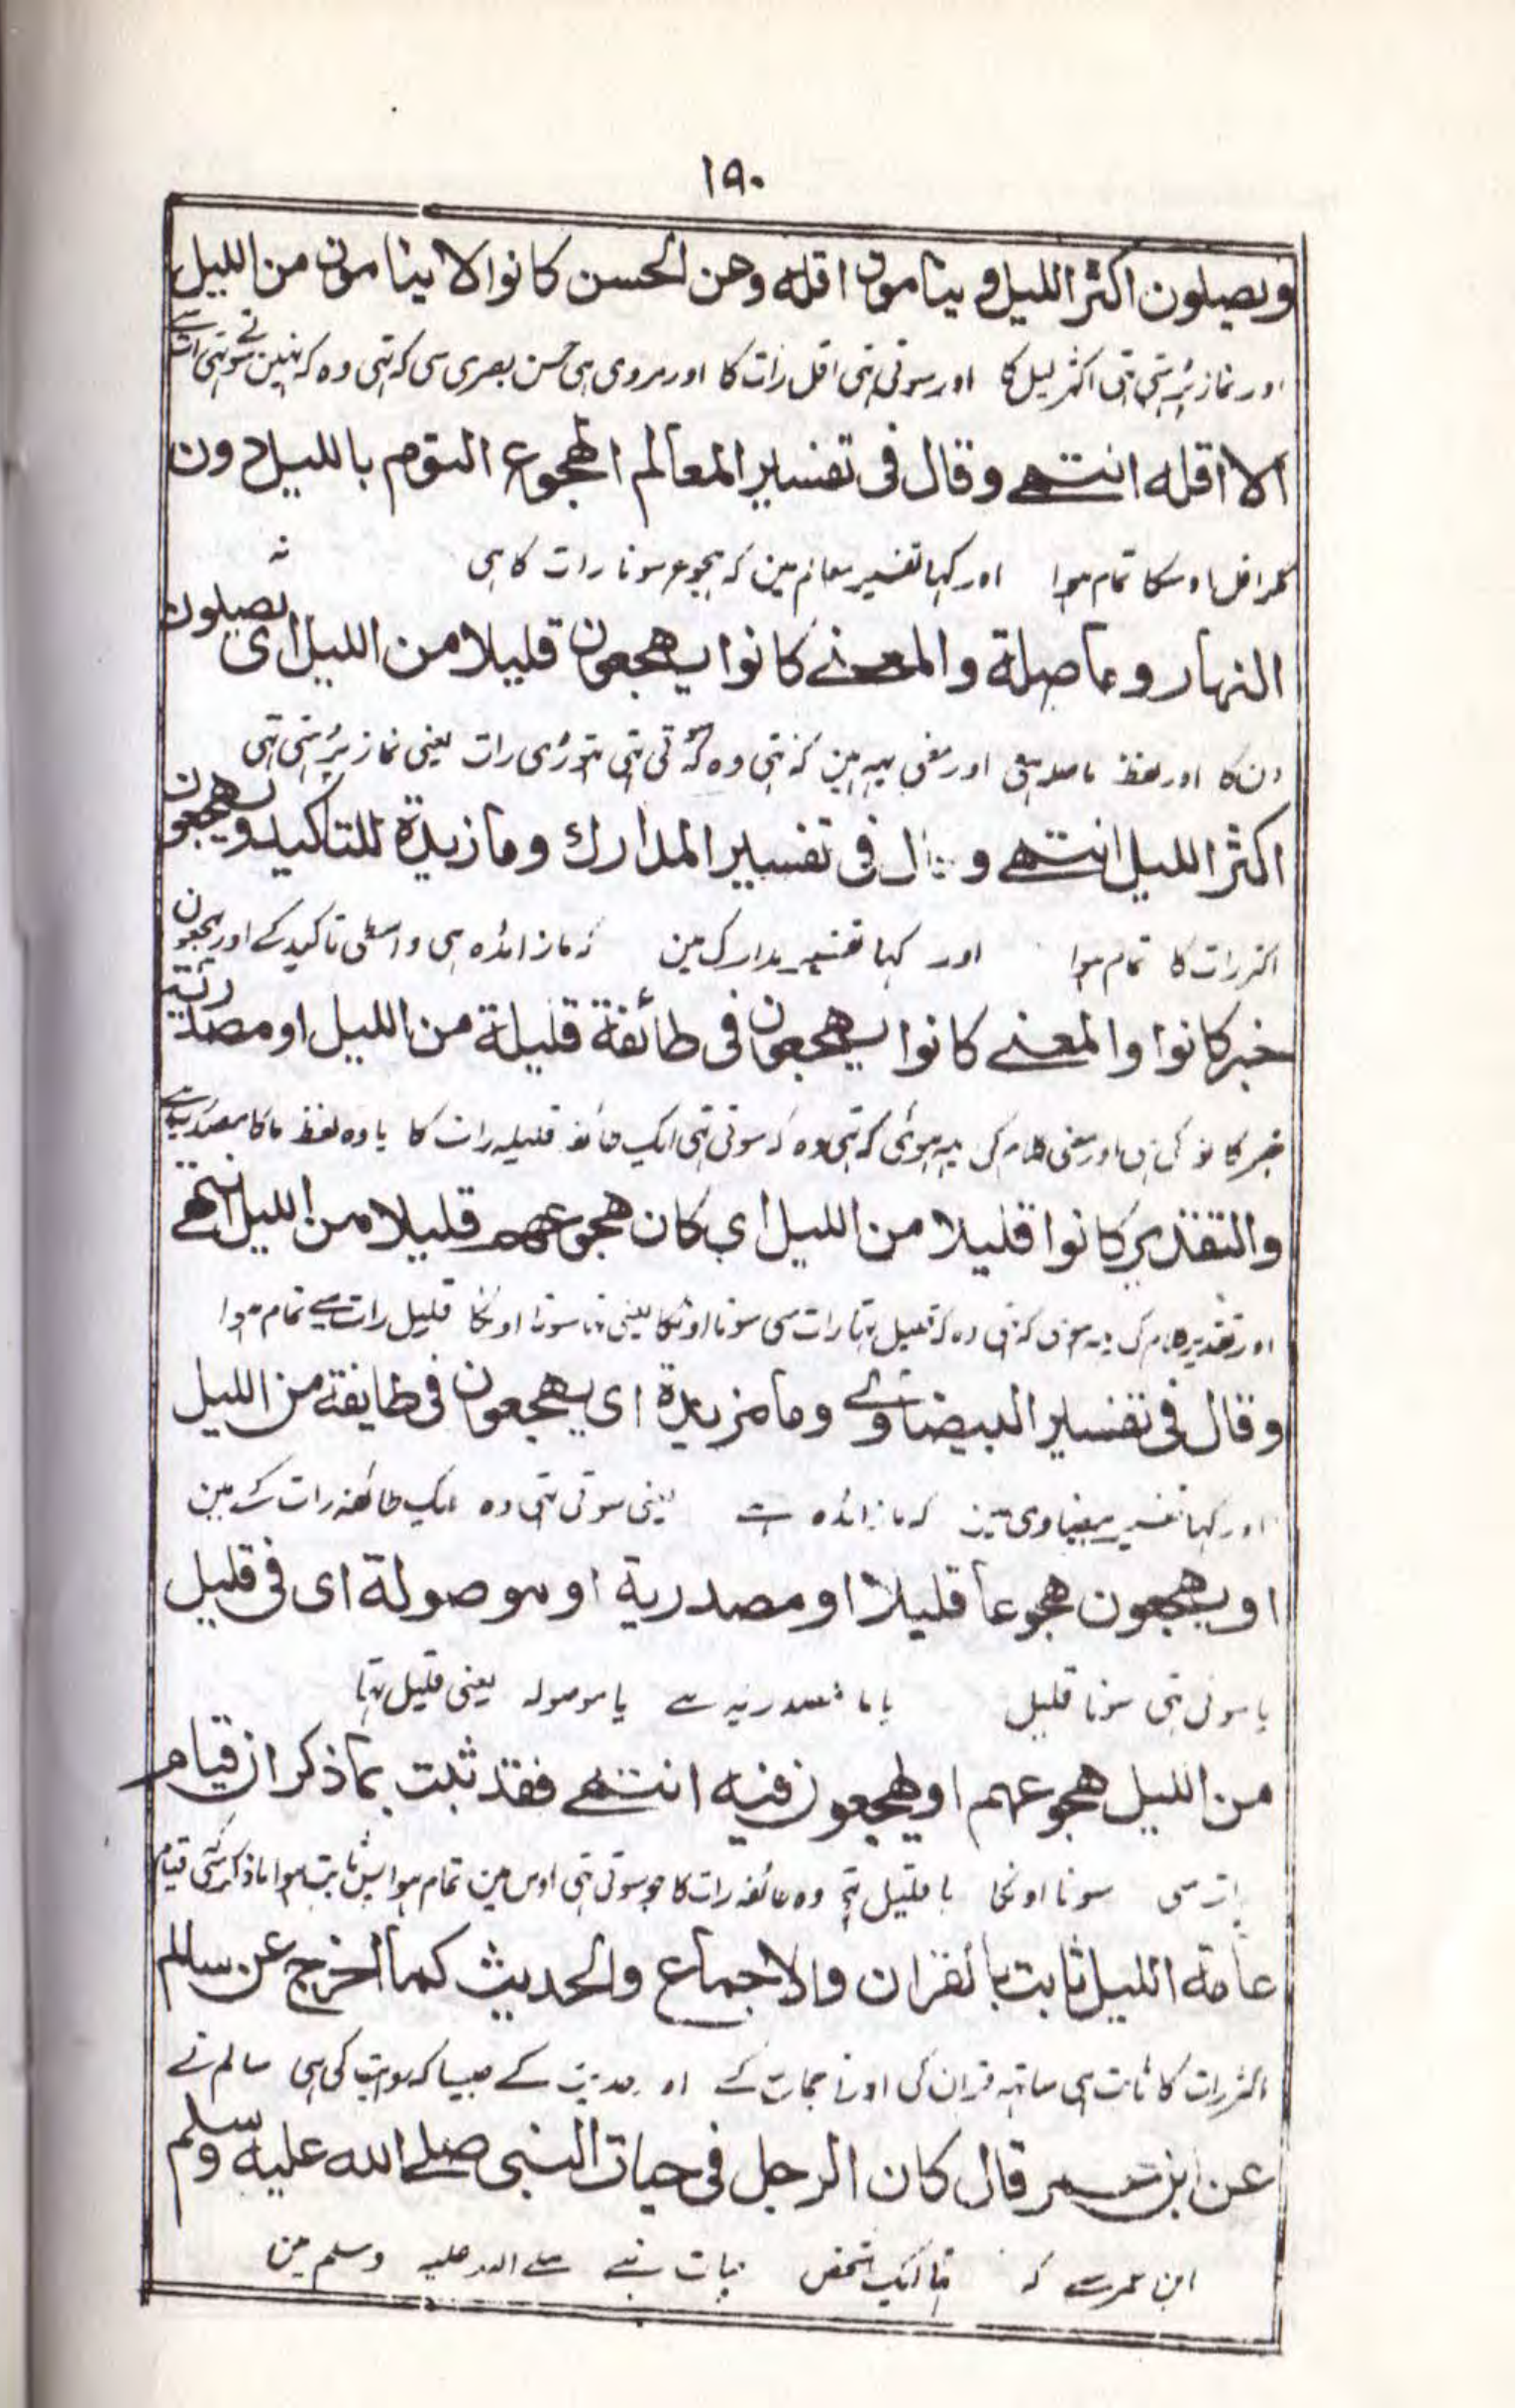 ١٩٠
ويصلون اكثر الليل و ينامون اقله وعن الحسن كانوا لا ينامون من الليل
اور نماز پڑہتی تہی اکثر لیل کا اور سوتی تہی اقل رات کا اور مروی ہی حسن بصری سی کہ تہی وہ کہ نہین سوتی
الا اقله انتهے وقال فى تفسير المعالم الهجوع النوم بالليل دون
مگر اقل اوسکا تمام ہوا اور کہا تفسیر معالم مین کہ ہجوع سونا رات کا ہی نہ
النهار وما صلة والمعنے كانوا يهجعون قليلا من الليل اى يصلون
دن کا اور لفظ ما صلہ ہی اور معنی یہہ ہین کہ تہی وہ کہ تہی تہوڑی رات یعنی نماز پڑہتی تہی
اكثر الليل انتهے و قال فى تفسير المدارك وما زيدة للتاكيد ويهجعون
اکثر رات کا تمام ہوا اور کہا تفسیر مدارک مین کہ ما زائدہ ہی واسطی تاکید کے اور یہجعون
خبر كانوا والمعنے كانوا يهجعون فى طائفة قليلة من الليل او مصدرية
خبر کانو کی ہی اور معنی کلام کی یہہ ہوئی کہ تہی وہ کہ سوتی تہی ایک طائفہ قلیلہ رات کا یا وہ لفظ ما کا مصدریہ
والتقدير كانوا قليلا من الليل اي كان هجوعهم قليلا من الليل انتهے
اور تقدیر کلام کی یہہ ہوی کہ تہی وہ کہ قلیل تہا رات سی سونا اونکا یعنی تہا سونا اونکا قلیل رات سے تمام ہوا
وقال فى تفسير البيضاوے وما مزيدة اى يهجعون فى طايفة من الليل
اور کہا تفسیر بیضاوی مین کہ ما زائدہ ہے یعنی سوتی تہی وہ ایک طائفہ رات کے مین
او يهجعون هجوعا قليلا او مصدرية او موصولة اى فى قليل
یا سوتی تہی سونا قلیل یا ما مصدریہ ہے یا موصولہ یعنی قلیل تہا
من الليل هجوعهم او يهجعون فيه انتهے فقد ثبت بما ذكر ان قيام
رات سی سونا اونکا یا قلیل تہی وہ طائفہ رات کا جو سوتی تہی اوس مین تمام ہوا پس ثابت ہوا ما ذکر سی کہ قیام
عامة الليل ثابت بالقران والاجماع والحديث كما اخرج عن سالم
اکثر رات کا ثابت ہی ساتہہ قران کی اور اجماع کے اور حدیث کے جیسا کہ روایت کی ہی سالم نے
عن ابن عمر قال كان الرجل فى حيات النبى صلے الله عليه وسلم
ابن عمر سے کہ تہا ایک شخص حیات نبی صلے اللہ علیہ وسلم مین